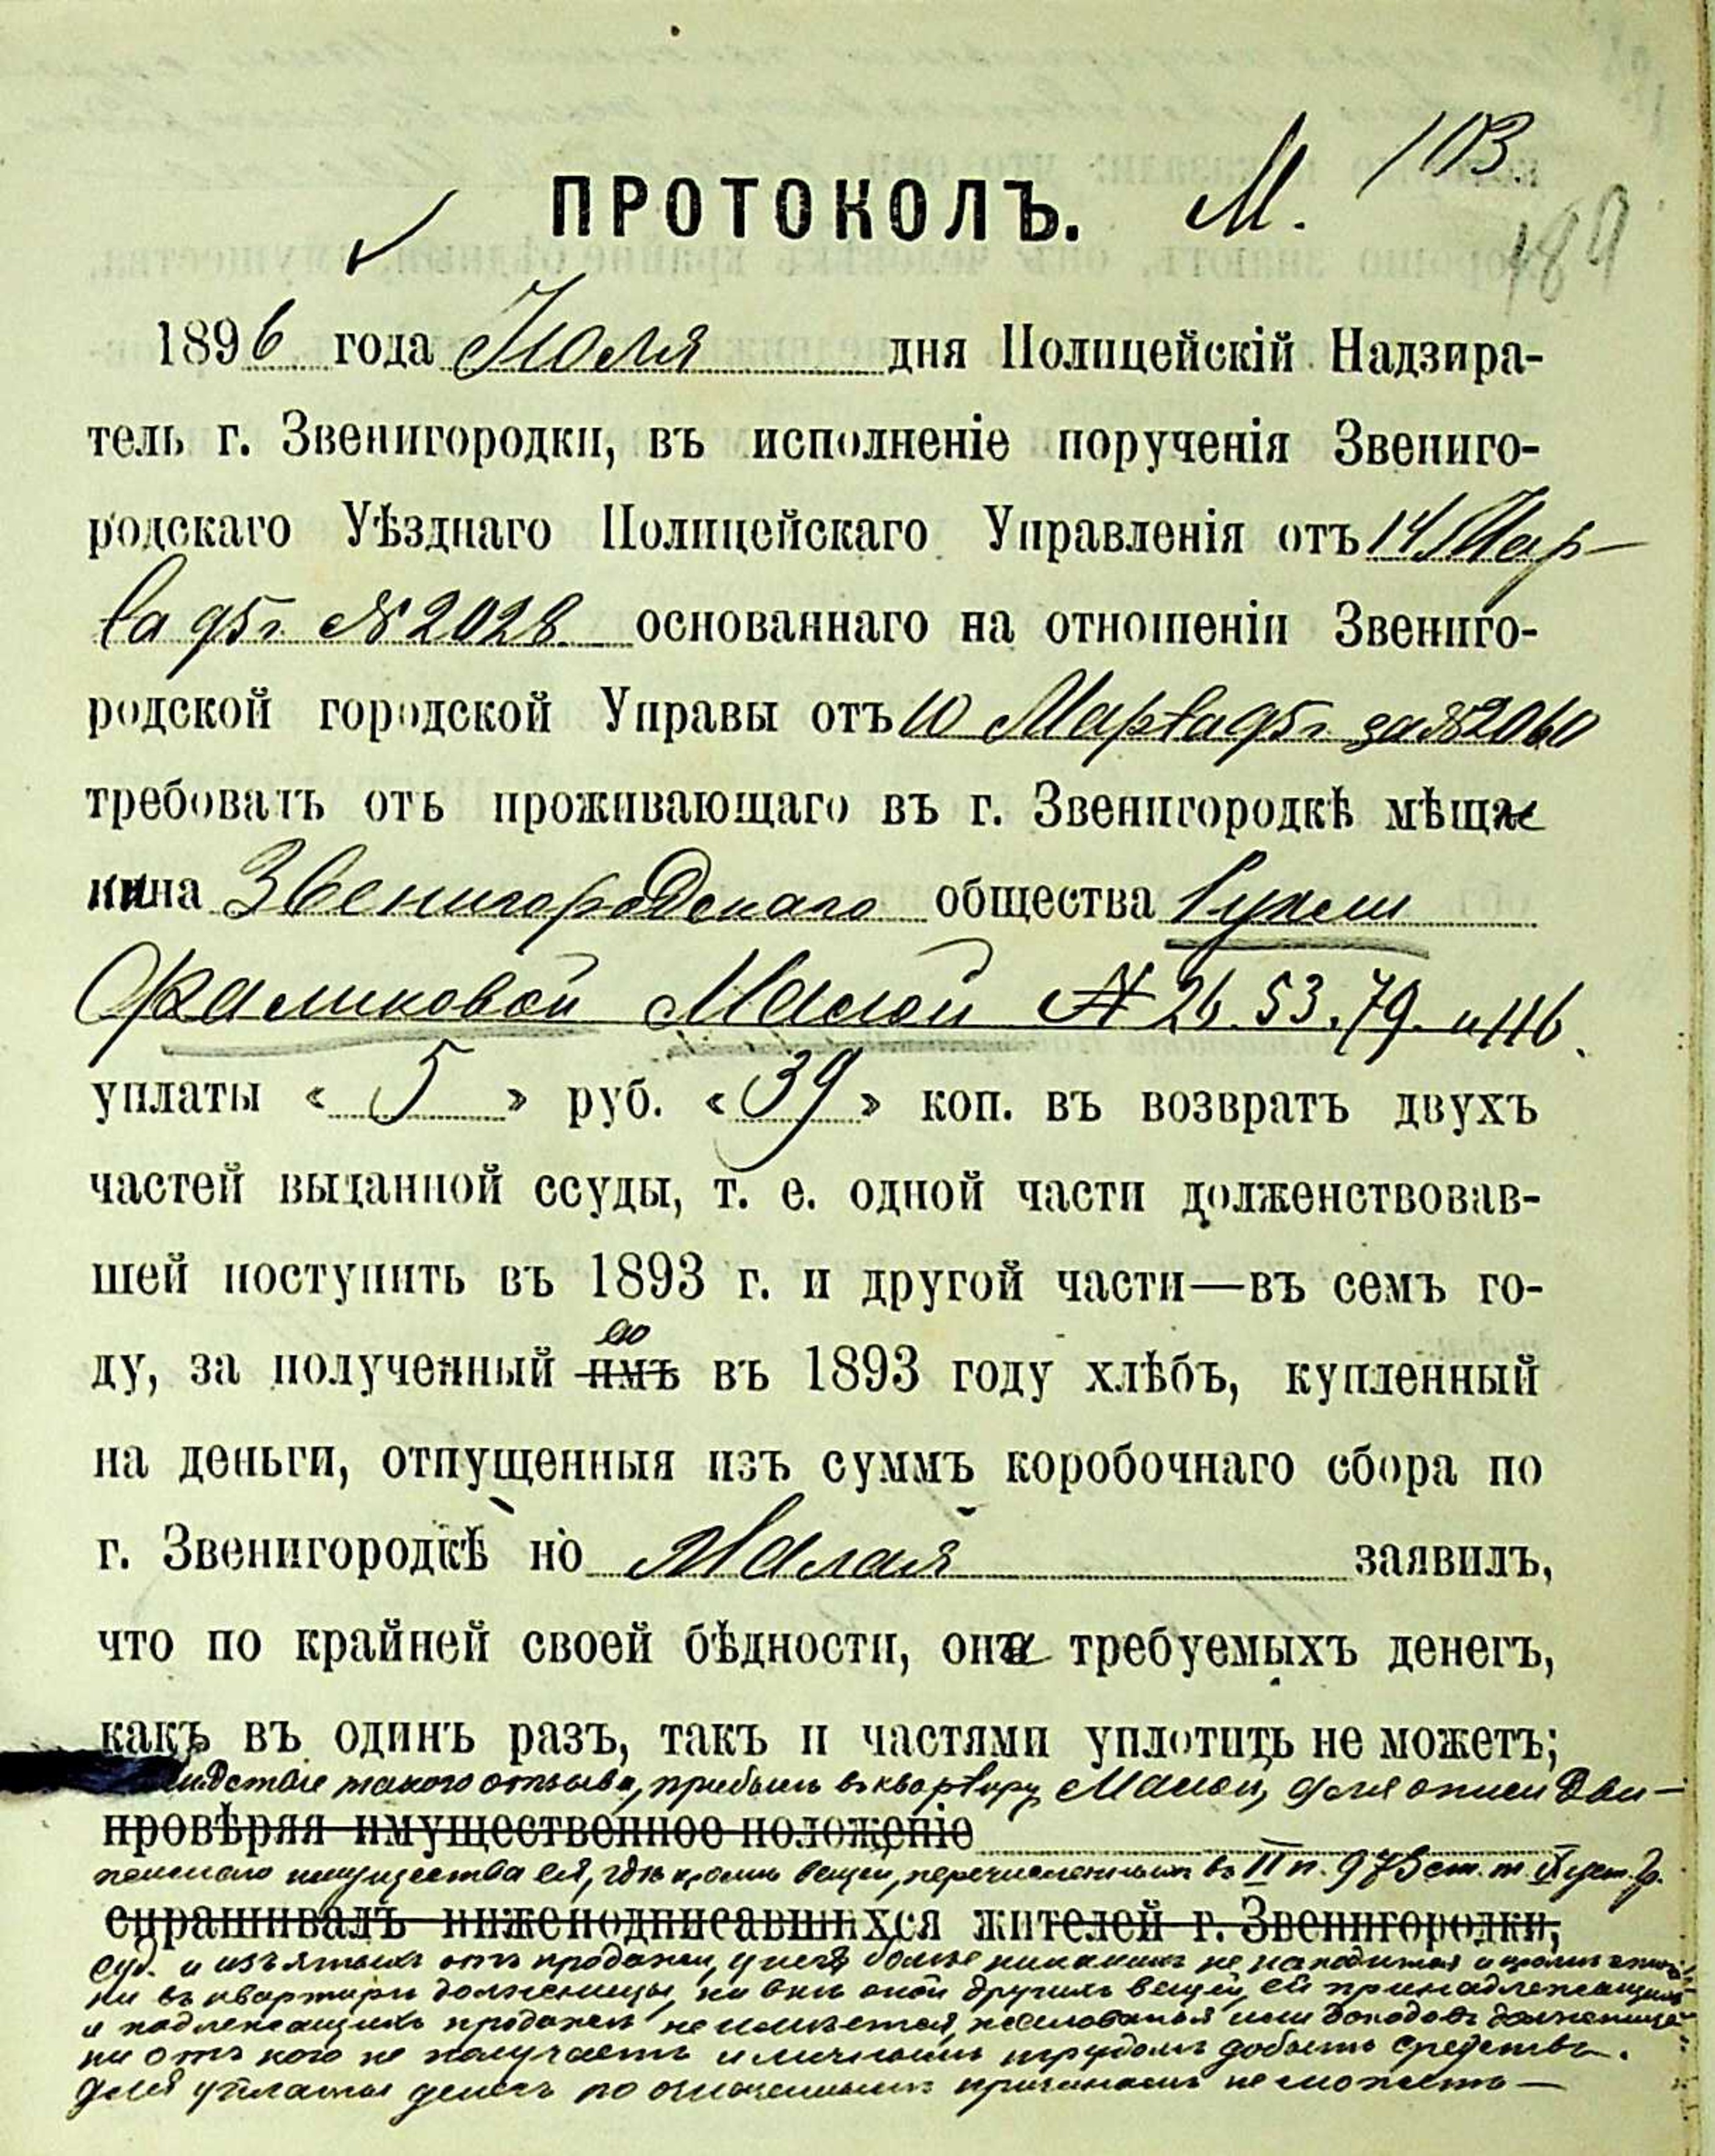 М. 103.
ПРОТОКОЛЪ.
189
1896 года Июля дня Полицейскій Надзира-
тель г. Звенигородки, въ исполненіе порученія Звениго-
родскаго Уѣзднаго Полицейскаго Управленія отъ 14 Мар-
та 95 г. № 2028 основаннаго на отношеніи Звениго-
родской городской Управы отъ 10 Марта 95 г. за № 2060
требовать отъ проживающаго въ г. Звенигородкѣ мѣща
нина Звенигородскаго общества
Фроимковой Малой № 26. 53. 79. и 116.
уплаты « 5 » руб. « 39 » коп. въ возвратъ двухъ
частей выданной ссуды, т. е. одной части долженствовав-
шей поступить въ 1893 г. и другой части—въ семъ го-
ею
ду, за полученный имъ въ 1893 году хлѣбъ, купленный
на деньги, отпущенныя изъ суммъ коробочнаго сбора по
г. Звенигородкѣ но Малая заявилъ,
что по крайней своей бѣдности, она требуемыхъ денегъ,
какъ въ одинъ разъ, такъ и частями уплотить не можетъ;
такого отзыва, прибывъ въ квартиру Малой, для описи дви-
провѣряя имущественное положеніе
имущества ея, гдѣ кромѣ вещей, перечисленныхъ въ II п. 973 ст. т. уст. гр.
спрашивалъ нижеподписавшихся жителей г. Звенигородки,
суд. и изъятыхъ отъ продажи, у нея болѣе никакихъ не находится и кромѣ
ни въ квартирѣ должницы, ни внѣ оной другихъ вещей, ей принадлежащихъ
и подлежащихъ продажѣ не имѣется, жалованья или доходовъ должница
ни отъ кого не получаетъ и личнымъ трудомъ добыть средствъ
для уплаты денегъ по означеннымъ причинамъ не можетъ —